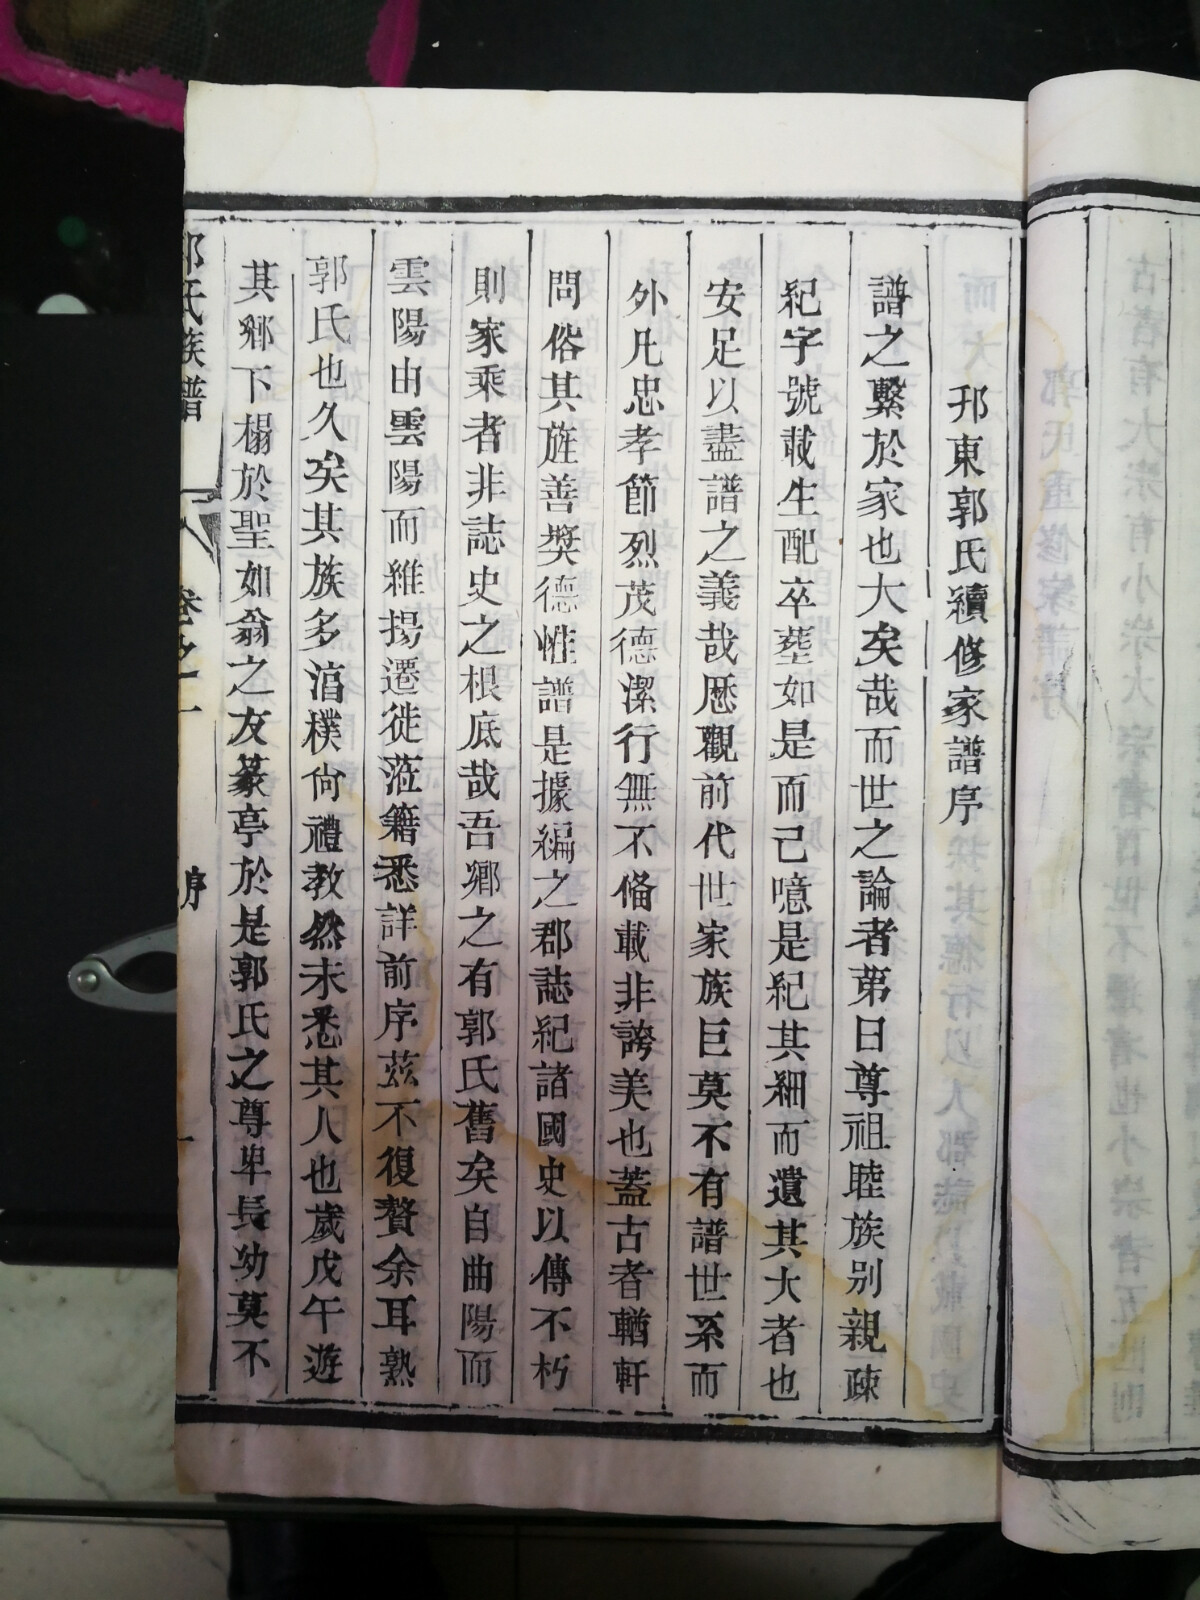 邗東郭氏續修家譜序
譜之繫於家也大矣哉而世之論者第曰尊祖睦族别親疎
紀字號載生配卒塟如是而已噫是紀其細而遺其大者也
安足以盡譜之義哉歷觀前代世家族巨莫不有譜世系而
外凡忠孝節烈茂德潔行無不偹載非誇美也蓋古者輶軒
問俗其旌善奬德惟譜是據編之郡誌紀諸國史以傳不朽
則家乘者非誌史之根底哉吾鄉之有郭氏舊矣自曲陽而
雲陽由雲陽而維揚遷徙蒞籍悉詳前序茲不復贅余耳熟
郭氏也久矣其族多湻樸尙禮教然未悉其人也歲戊午遊
其鄉下榻於聖如翁之友篆亭於是郭氏之尊卑長幼莫不
郭氏族譜
卷之一
序
一